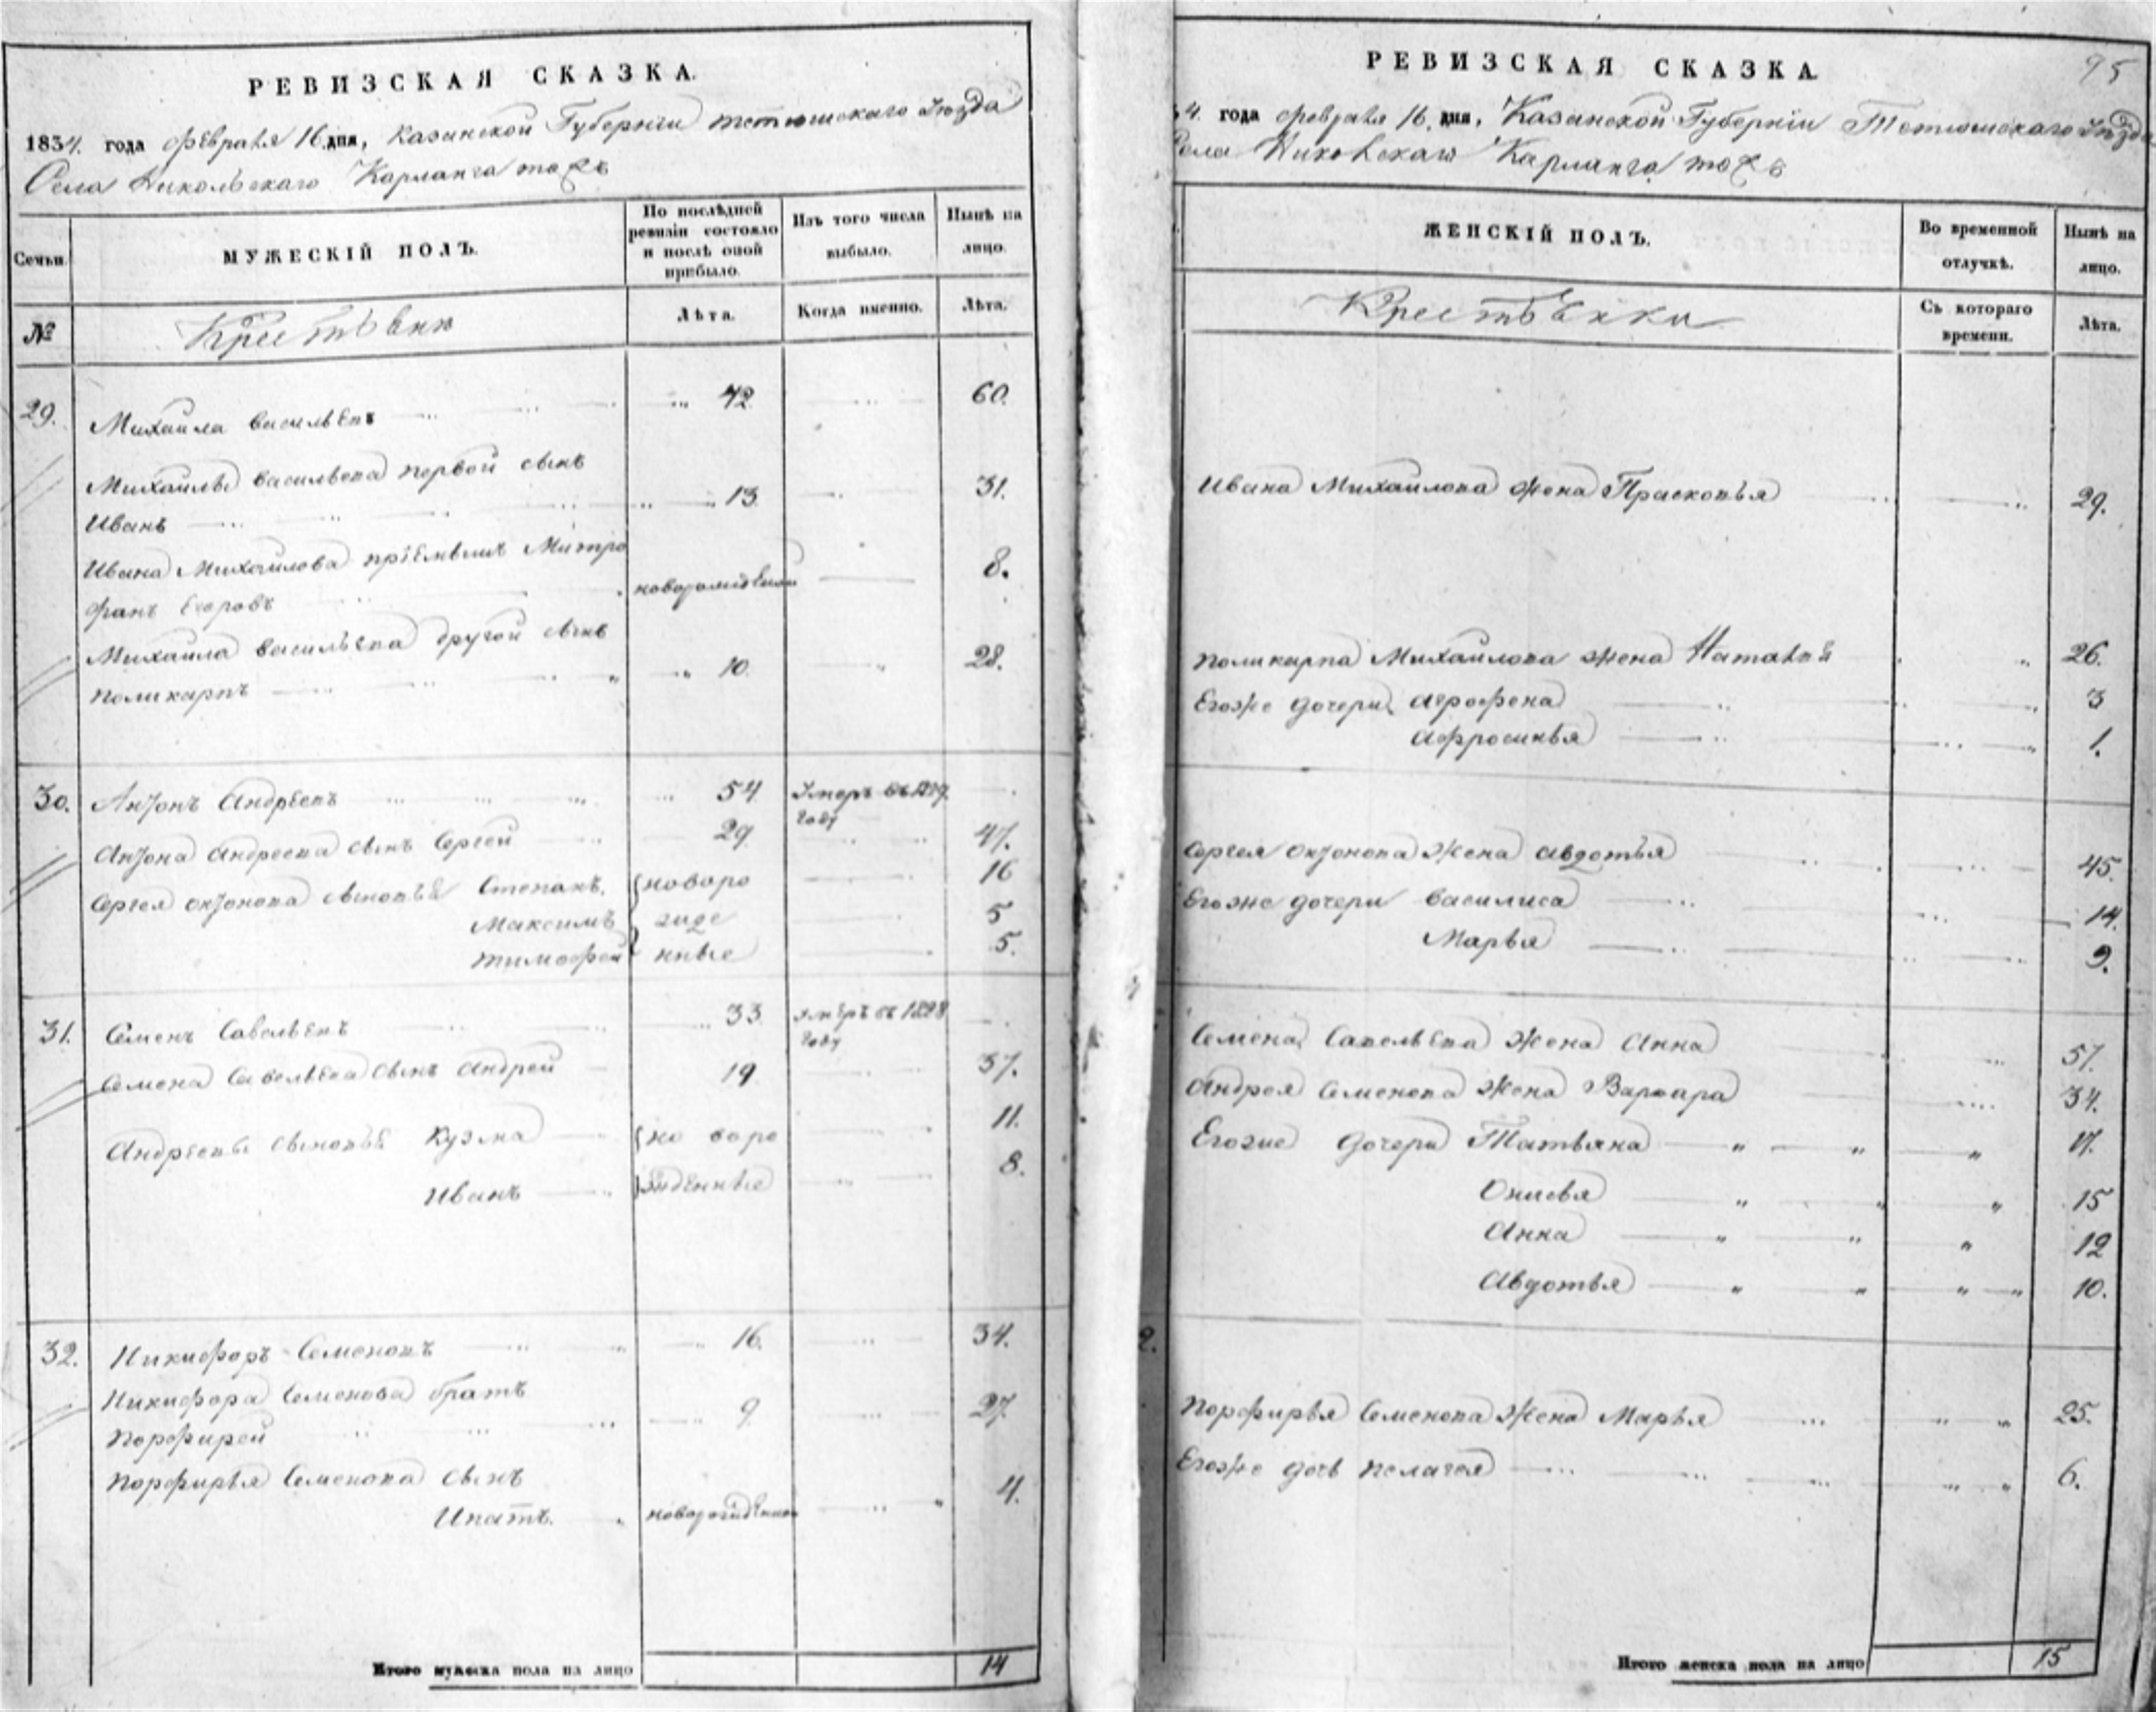 РЕВИЗСКАЯ СКАЗКА.
1834. года февраля 16 дня, Казанской Губернии тетюшскаго Уезда
Села Никольскаго Карланга тожъ
Семьи.
МУЖЕСКІЙ ПОЛЪ.
По послѣдней ревизіи состояло и послѣ оной прибыло.
Изъ того числа выбыло.
Нынѣ на лицо.
№
Крестьяне
Лѣта.
Когда именно.
Лѣта.
29. Михайла Васильевъ 42 60.
Михайлы Васильева первой сынъ
Иванъ 13 31.
Ивана Михайлова пріемышъ Митро
фанъ Егоровъ новорожденной 8.
Михайла Васильева другой сынъ
Поликарпъ 10. 28.
30. Антонъ Андреевъ 54 Умеръ въ году
Антона Андреева сынъ Сергей 29 47.
Сергея Антонова сыновья Степанъ. новоро 16
Максимъ жде 5
Тимофей нные 5.
31. Семенъ Савельевъ 33 умеръ въ 1828 году
Семена Савельева сынъ Андрей 19 37.
Андреевы сыновья Кузма но воро 11.
Иванъ жденные 8.
32. Никифоръ Семеновъ 16. 34.
Никифора Семенова братъ
Порфирей 9 27.
Порфирья Семенова сынъ
Ипатъ. новорожденной 4.
Итого мужеска пола на лицо 14
РЕВИЗСКАЯ СКАЗКА.
95
34. года февраля 16. дня, Казанской Губерніи Тетюшскаго Уезда
Села Карланга тожъ
ЖЕНСКІЙ ПОЛЪ.
Во временной отлучкѣ.
Нынѣ на лицо.
Крестьянки
Съ котораго времени.
Лѣта.
Ивана Михайлова жена Прасковья 29.
Поликарпа Михайлова жена 26.
Егоже дочери Агрофена 3
Афросинья 1.
Сергея Антонова жена Авдотья 45.
Егоже дочери Василиса 14.
Марья 9.
Семена Савельева жена Анна 57.
Андрея Семенова жена Варвара 34.
Егоже дочери Татьяна 17.
Онисья 15
Анна 12
Авдотья 10.
2.
Порфирья Семенова жена Марья 25.
Егоже дочь Пелагея 6.
Итого женска пола на лицо 15